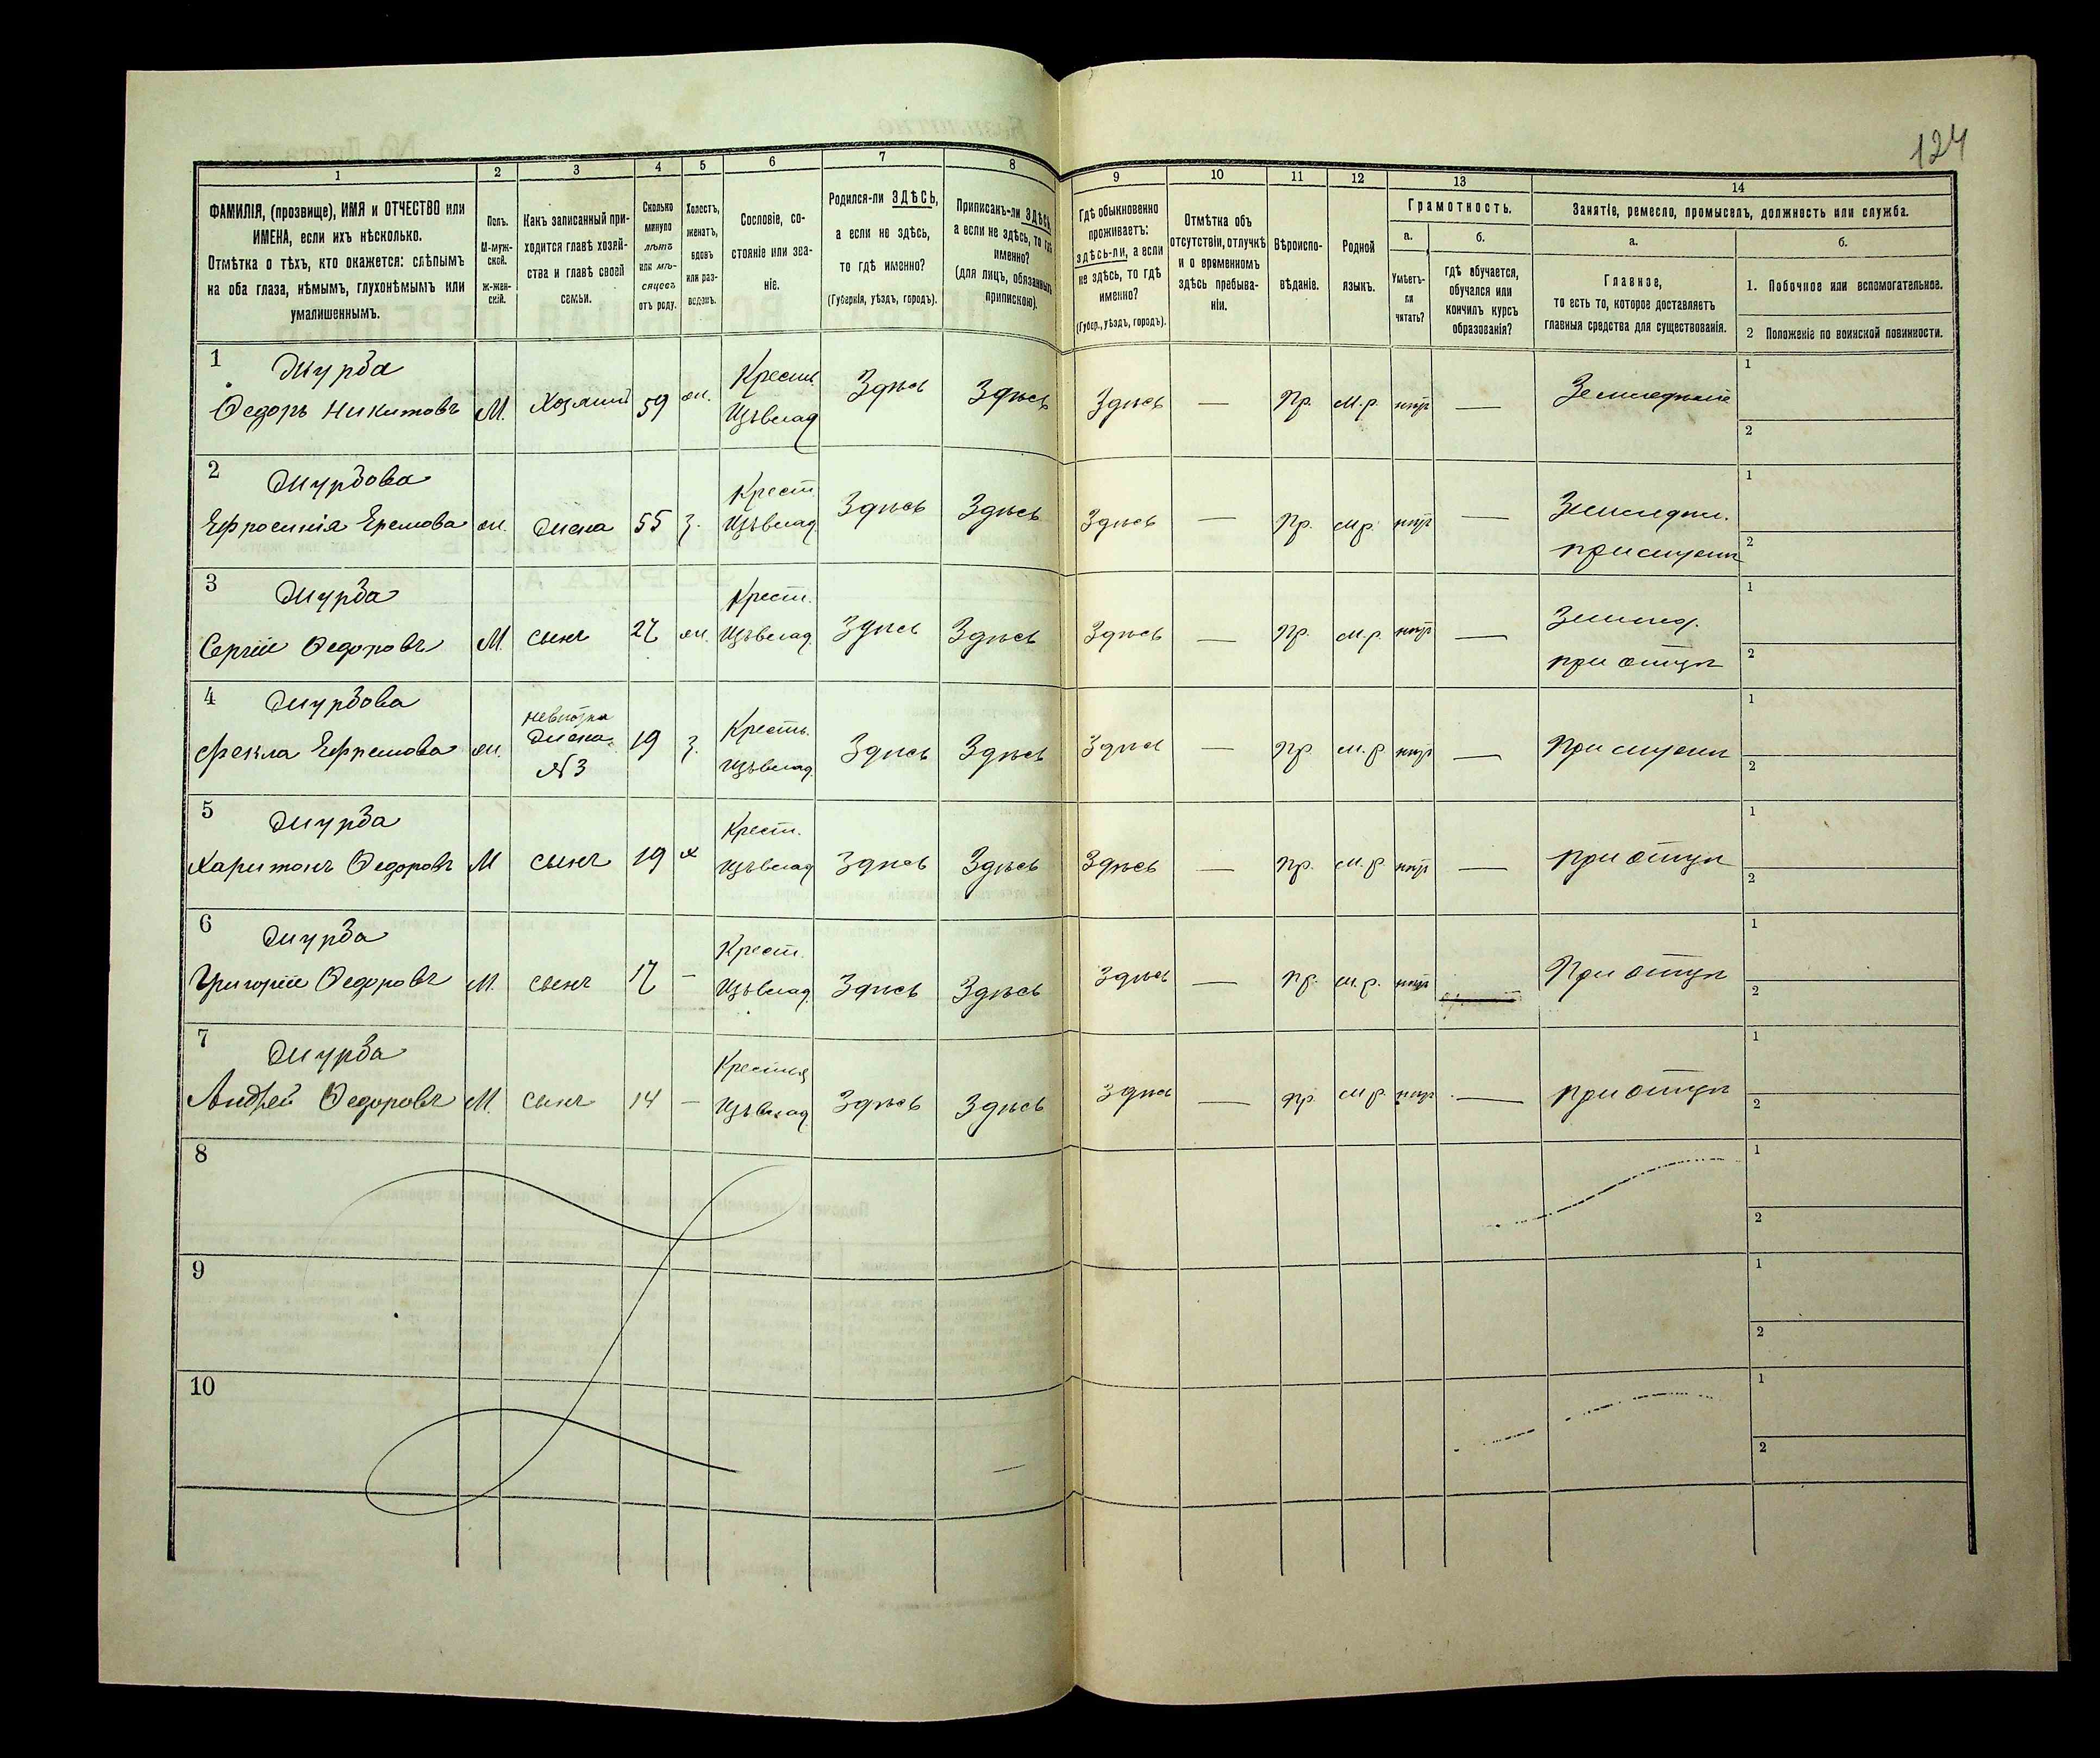 124
1
2
3
4
5
6
7
8
9
10
11
12
13
14
ФАМИЛІЯ, (прозвище), ИМЯ и ОТЧЕСТВО или
ИМЕНА, если ихъ нѣсколько.
Отмѣтка о тѣхъ, кто окажется: слѣпымъ
на оба глаза, нѣмымъ, глухонѣмымъ или
умалишеннымъ.
Полъ.
М-муж-
ской.
Ж-жен-
скій.
Какъ записанный при-
ходится главѣ хозяй-
ства и главѣ своей
семьи.
Сколько
минуло
лѣтъ
или мѣ-
сяцевъ
отъ роду.
Холостъ,
женатъ,
вдовъ
или раз-
веденъ.
Сословіе, со-
стояніе или зва-
ніе.
Родился-ли ЗДѢСЬ,
а если не здѣсь,
то гдѣ именно?
(Губернія, уѣздъ, городъ).
Приписанъ-ли ЗДѢСЬ
а если не здѣсь, то гдѣ
именно?
(для лицъ, обязанныхъ
припискою).
Гдѣ обыкновенно
проживаетъ:
здѣсь-ли, а если
не здѣсь, то гдѣ
именно?
(Губер., уѣздъ, городъ).
Отмѣтка объ
отсутствіи, отлучкѣ
и о временномъ
здѣсь пребыва-
ніи.
Вѣроиспо-
вѣданіе.
Родной
языкъ.
Грамотность.
а.
Умѣетъ-
ли
читать?
б.
гдѣ обучается,
обучался или
кончилъ курсъ
образованія?
Занятіе, ремесло, промыселъ, должность или служба.
а.
Главное,
то есть то, которое доставляетъ
главныя средства для существованія.
б.
1. Побочное или вспомогательное.
2 Положеніе по воинской повинности.
1 Журба
Федоръ Никитовъ М. Хозяинъ 59 ж. Крест. Здѣсь Здѣсь Здѣсь — Пр. М.р. нѣтъ — Земледѣліе 1
2
2 Журбова
Ефросинія Еремова ж. жена 55 з. Крест. Здѣсь Здѣсь Здѣсь — Пр. м.р. нѣтъ — Земледѣл. 1
при мужѣ 2
3 Журба
Сергій Федоровъ М. сынъ 27 ж. Крест. Здѣсь Здѣсь Здѣсь — Пр. м.р. нѣтъ — Землед. 1
при отцѣ 2
4 Журбова
Фекла Ефремова ж. невѣстка жена №3 19 з. Крестъ. Здѣсь Здѣсь Здѣсь — Пр. м.р нѣтъ — При мужѣ 1
2
5 Журба
Харитонъ Федоровъ М сынъ 19 х Крест. Здѣсь Здѣсь Здѣсь — Пр. м.р нѣтъ — при отцѣ 1
2
6 Журба
Григорій Федоровъ М. сынъ 17 — Крест. Здѣсь Здѣсь Здѣсь — Пр. м.р. нѣтъ При отцѣ 1
2
7 Журба
Андрей Федоровъ М. сынъ 14 — Здѣсь Здѣсь Здѣсь — Пр. м.р. нѣтъ — при отцѣ 1
2
8
1
2
9
1
2
10
1
2